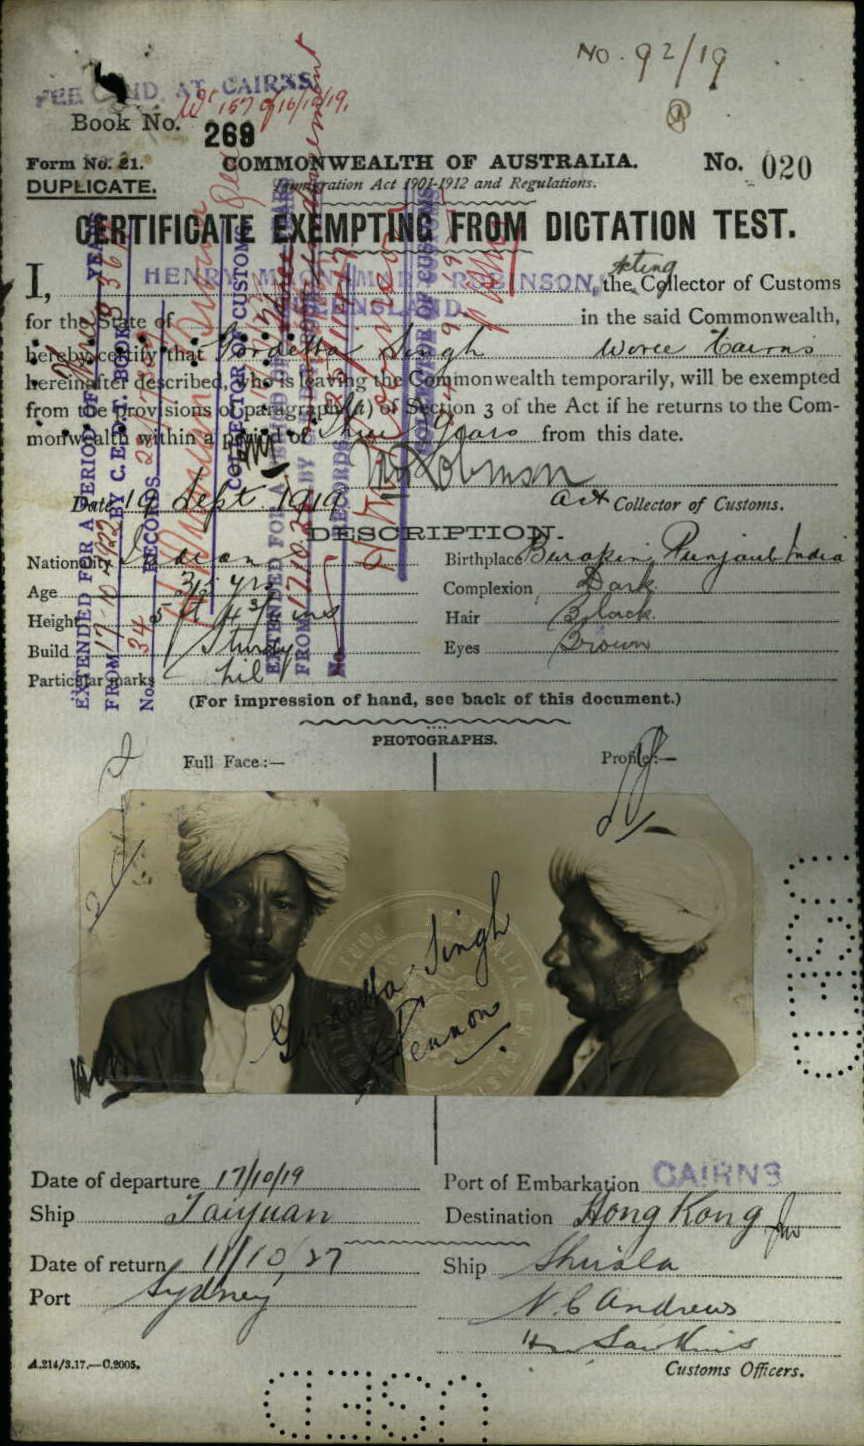 No. 92/19
FEE AT CAIRNS
Book No. 269
Form No. 21. COMMONWEALTH OF AUSTRALIA. No. 020
DUPLICATE. Immigration Act 1901-1912 and Regulations.
CERTIFICATE EXEMPTING FROM DICTATION TEST.
I, HENRY ROBINSON, the Acting Collector of Customs
for the State of QUEENSLAND in the said Commonwealth,
hereby certify that Singh Cairns
hereinafter described, who is leaving the Commonwealth temporarily, will be exempted
from the provisions of paragraph (a) of Section 3 of the Act if he returns to the Com-
monwealth within a period of Years from this date.
Robinson
Date 19 Sept. 1919 Act Collector of Customs.
DESCRIPTION.
Nationality Indian Birthplace Punjaub India
Age 35 yrs Complexion Dark
Height 5 ft 4 3/4 ins Hair Black
Build Sturdy Eyes Brown
Particular marks nil
(For impression of hand, see back of this document.)
PHOTOGRAPHS.
Full Face:— Profile:—
Singh
EXTENDED FOR A PERIOD OF YEARS
FROM 17-10-1922 BY C.E.
No. 34 RECORDS
COLLECTOR CUSTOMS
EXTENDED FOR A
FROM 17.10.25 BY
No. RECORDS
OF CUSTOMS
Date of departure 17/10/19 Port of Embarkation CAIRNS
Ship Taiyuan Destination Hong Kong
Date of return 11/10/27 Ship Shirala
Port Sydney N C Andrews
Customs Officers.
A.214/3.17.—C.2005.